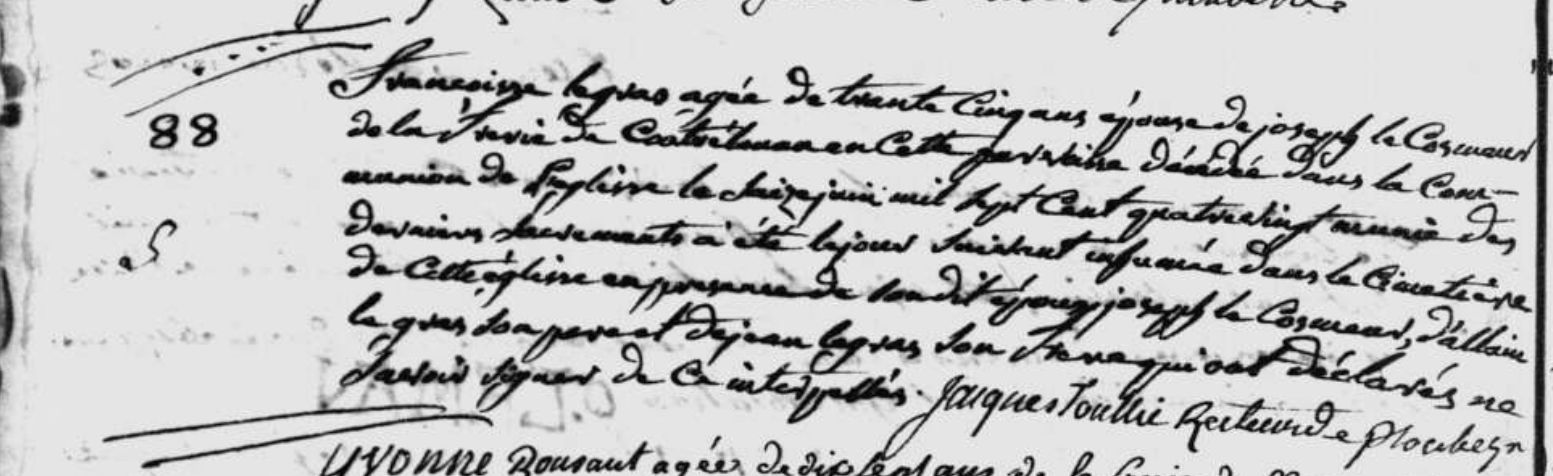 88
françoisse legras agée de trente Cinq ans épouse de joseph le Cosmeur
de la frerie de en Cette paroisse décédée dans la Com-
munion de l'eglisse le Saize juin mil Sept Cent quatrevingt munie des
derniers sacrements a été lejour suivant inhumée dans le Cimetière
de Cette églisse en presence de Sondit époux joseph le Cosmeur, d'allain
le gras Son pere et dejean legras Son frere qui ont déclarés ne
Savoir signer de Ce interpellés. Jacques Toullic Recteur de ploubezr
yvonne Rousaut agée de dix Sept ans de la